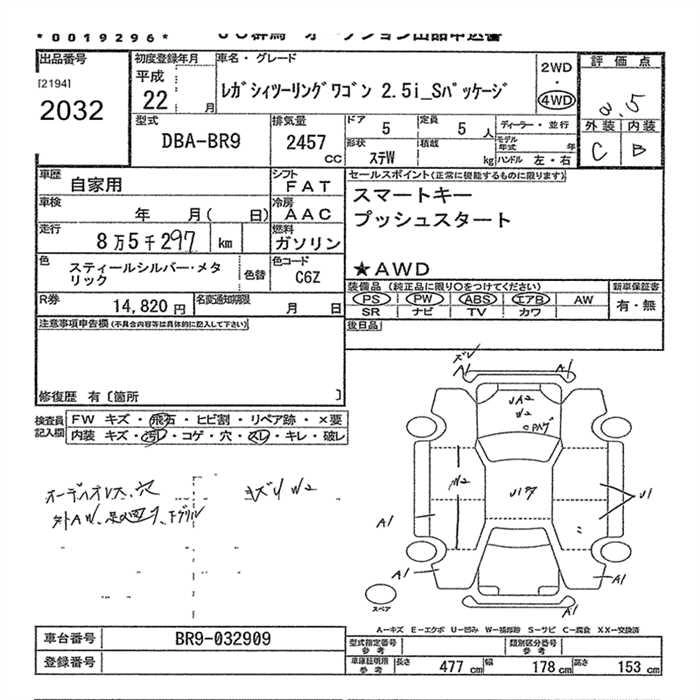 *0019296*
出品番号
[2194]
2032
初度登録年月
平成
22 月
車名・グレード
レガシィツーリングワゴン 2.5i_Sパッケージ
2WD
・
4WD
評価点
3.5
外装 内装
C B
型式
DBA-BR9
排気量
2457
CC
ドア 5
定員 5 人
ディーラー・並行
モデル年式 年
形状 ステW
積載 kg
ハンドル 左・右
車歴
自家用
シフト
FAT
セールスポイント(正常に機能するものに限ります)
スマートキー
プッシュスタート
★AWD
車検
年 月( 日)
冷房
AAC
走行
8万5千297 km
燃料
ガソリン
色
スティールシルバー・メタリック
色替
色コード
C6Z
装備品(純正品に限り○をつけてください)
新車保証書
PS PW ABS エアB AW
有・無
SR ナビ TV カワ
R券
14,820 円
名変通知期限
月 日
後日品
注意事項申告欄(不具合内容等は具体的に記入して下さい)
修復歴 有〔箇所 〕
検査員記入欄
FW キズ・飛石・ヒビ割・リペア跡・×要
内装 キズ・汚れ・コゲ・穴・スレ・キレ・破レ
オーディオレス、穴
キズリ W2
A1
W2
U1
A1
A1
A1
A1
スペア
A-キズ E-エクボ U-凹み W-補修跡 S-サビ C-腐食 XX-交換済
車台番号
BR9-032909
登録番号
型式指定番号
参考
類別区分番号
参考
車庫証明用
参考
長さ 477 cm
幅 178 cm
高さ 153 cm